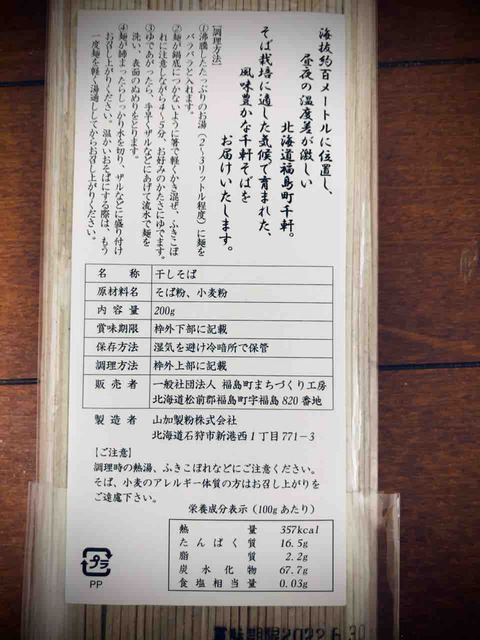 海抜約百メートルに位置し、
昼夜の温度差が激しい
北海道福島町千軒。
そば栽培に適した気候で育まれた、
風味豊かな千軒そばを
お届けいたします。
【調理方法】
①沸騰したたっぷりのお湯(2〜3リットル程度)に麺を
バラバラと入れます。
②麺が鍋底につかないように箸で軽くかき混ぜ、ふきこぼ
れに注意しながら4〜5分、お好みのかたさにゆでます。
③ゆであがったら、手早くザルなどにあげて流水で麺を
洗い、表面のぬめりをとります。
④麺が締まったらしっかり水を切り、ザルなどに盛り付け
お召し上がりください。温かいおそばにする際は、もう
一度麺を軽く湯通ししてからお召し上がりください。
名称 干しそば
原材料名 そば粉、小麦粉
内容量 200g
賞味期限 枠外下部に記載
保存方法 湿気を避け冷暗所で保管
調理方法 枠外上部に記載
販売者 一般社団法人 福島町まちづくり工房
北海道松前郡福島町字福島820番地
製造者 山加製粉株式会社
北海道石狩市新港西1丁目771-3
【ご注意】
調理時の熱湯、ふきこぼれなどにご注意ください。
そば、小麦のアレルギー体質の方はお召し上がりを
ご遠慮下さい。
栄養成分表示(100gあたり)
熱量 357kcal
たんぱく質 16.5g
脂質 2.2g
炭水化物 67.7g
食塩相当量 0.03g
プラ
PP
賞味期限2022.6.30